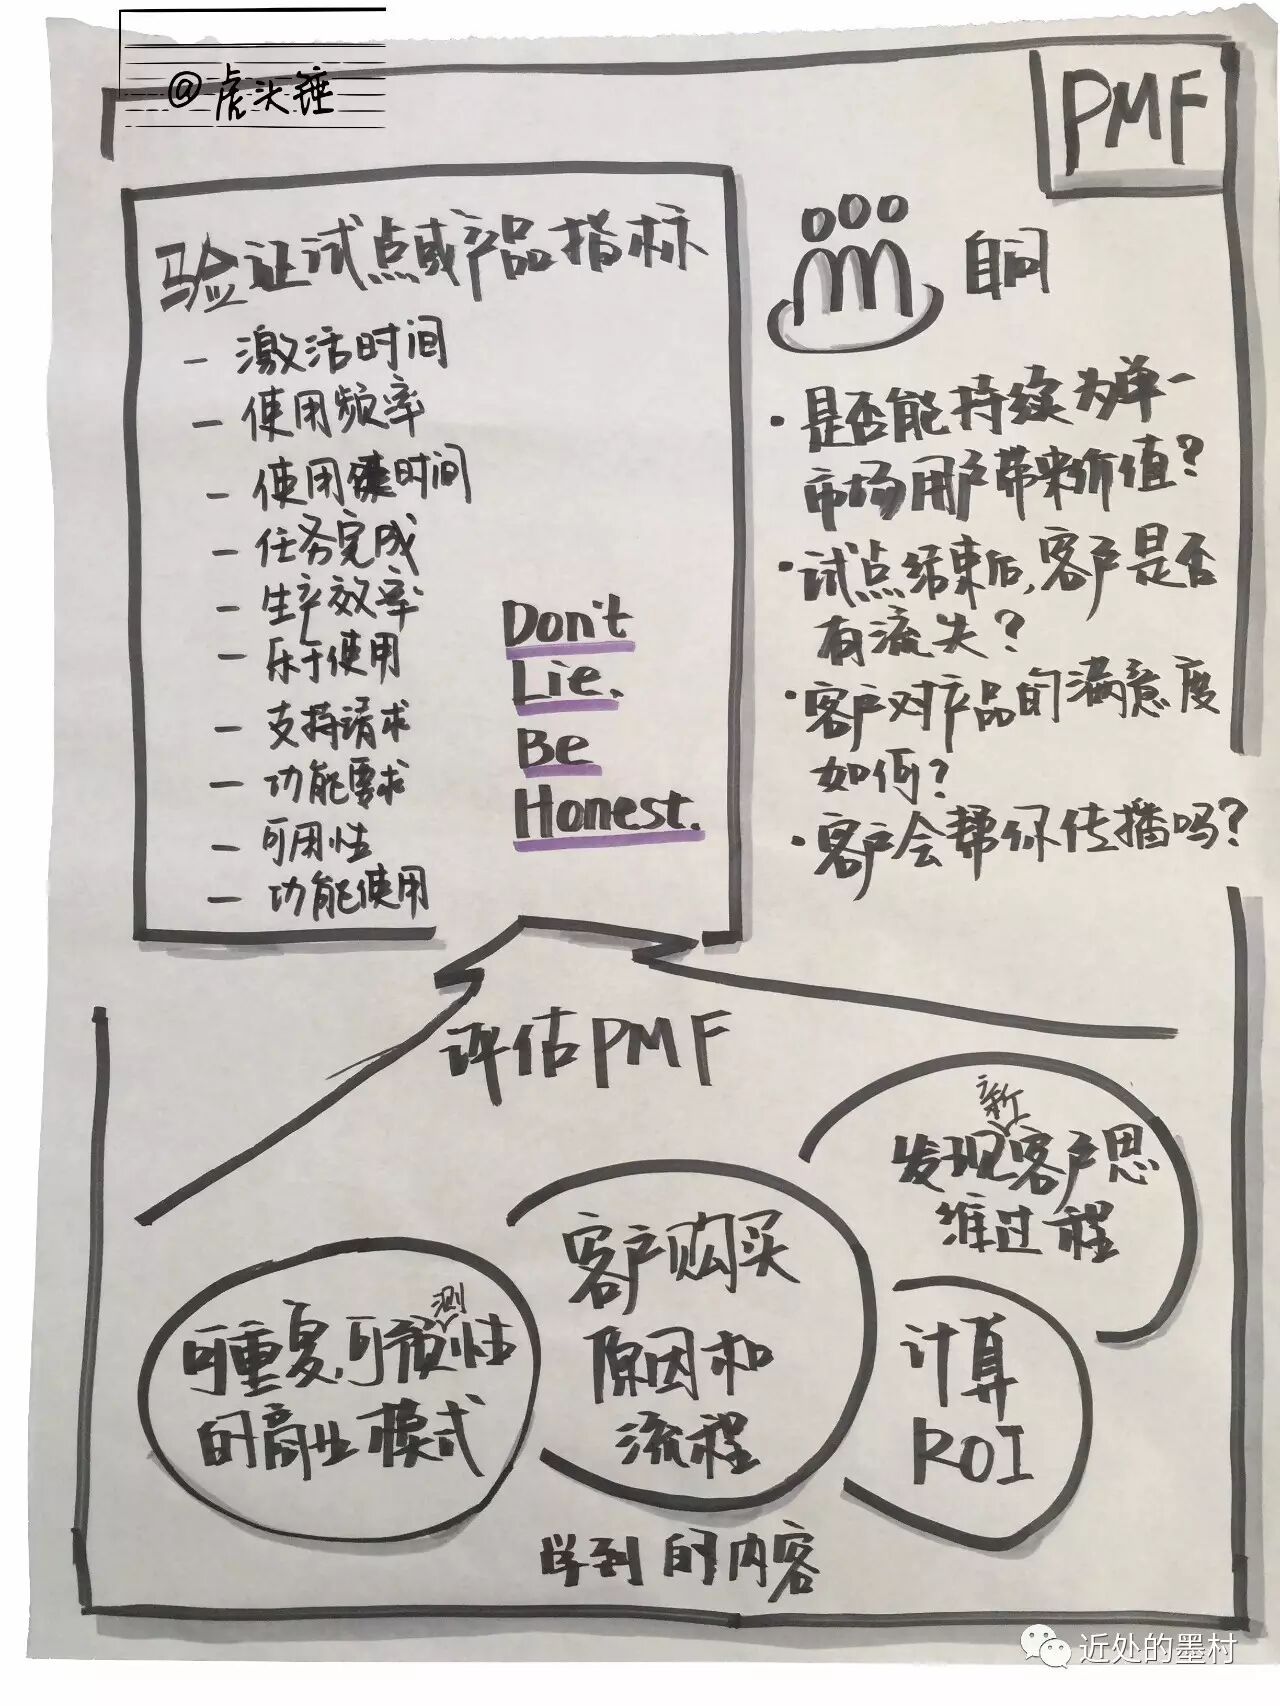 @虎头锤
PMF
验证试点或产品指标
- 激活时间
- 使用频率
- 使用时间
- 任务完成
- 生产效率
- 乐于使用
- 支持请求
- 功能要求
- 可用性
- 功能使用
Don't
Lie.
Be
Honest.
自问
·是否能持续为单一
市场用户带来价值?
·试点结束后,客户是否
有流失?
·客户对产品的满意度
如何?
·客户会帮你传播吗?
评估PMF
可重复,可预测性
的商业模式
客户购买
原因和
流程
发现新客户思
维过程
计算
ROI
学到的内容
近处的墨村